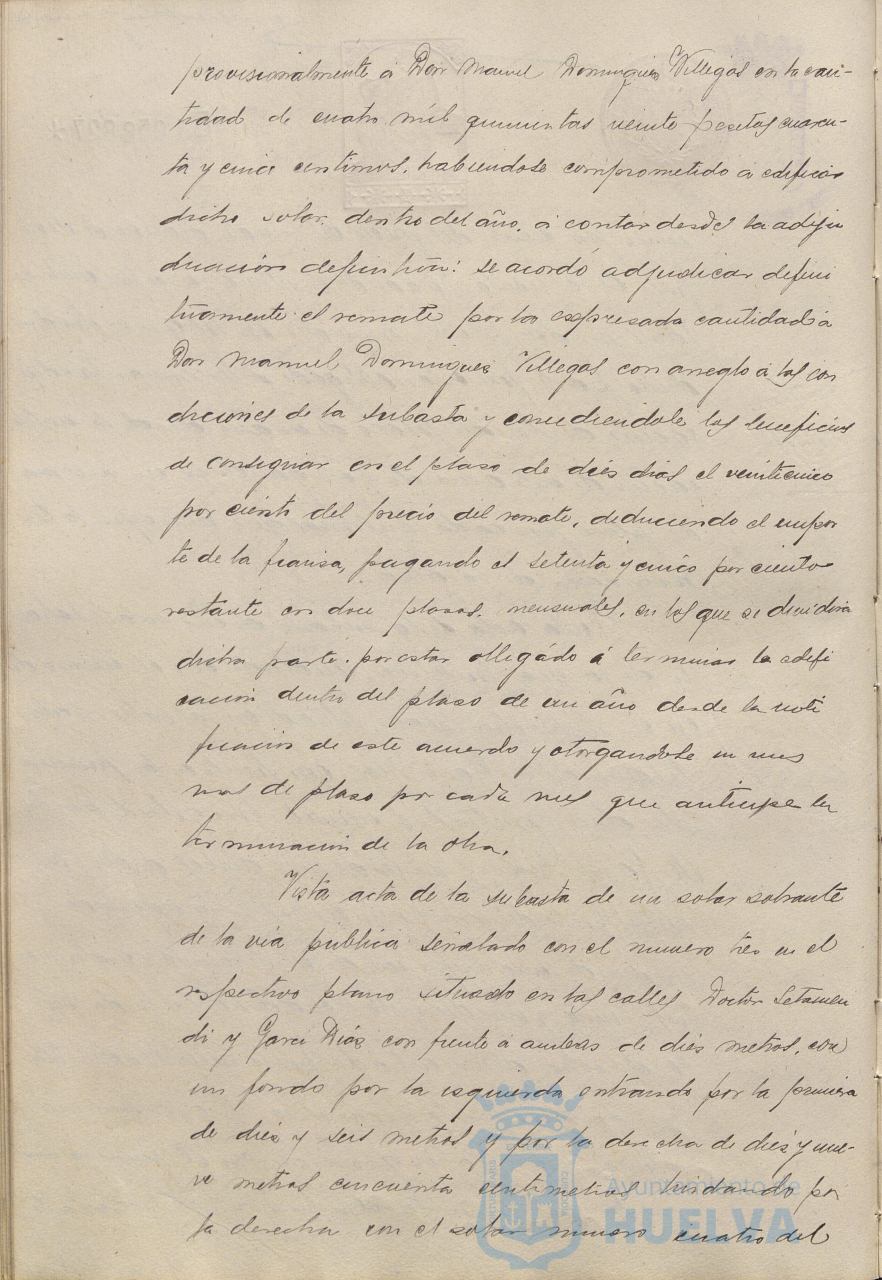 provisionalmente á Don Manuel Dominguez Villegas en la can-
tidad de cuatro mil quinientas veinte pesetas cuaren-
ta y cinco centimos, habiendose comprometido á edificar
dicho solar dentro del año, á contar desde la adju
dicación definitiva: se acordó adjudicar defini
tivamente el remate por la expresada cantidad á
Don Manuel Dominguez Villegas con arreglo á las con
diciones de la subasta y concediendole los beneficios
de consignar en el plaso de diés dias el veinticinco
por ciento del precio del remate, deduciendo el impor
te de la fianza, pagando el setenta y cinco por ciento
restante en doce plasos mensuales, en los que se dividira
dicha parte, por estar obligádo á terminar la edifi
cación dentro del plaso de un año desde la noti
ficación de este acuerdo y otorgandole un mes
mas de plaso por cada mes que anticipe la
terminación de la obra.
Vista acta de la subasta de un solar sobrante
de la via pública señalado con el numero tres en el
respectivo plano situado en las calles Doctor Letamen
di y Garci Diáz con frente á ambas de diés metros, con
un fondo por la izquierda entrando por la primera
de diés y seis metros y por la derecha de diés y nue-
ve metros cincuenta centimetros lindando por
la derecha con el solar numero cuatro del
Ayuntamiento de
HUELVA